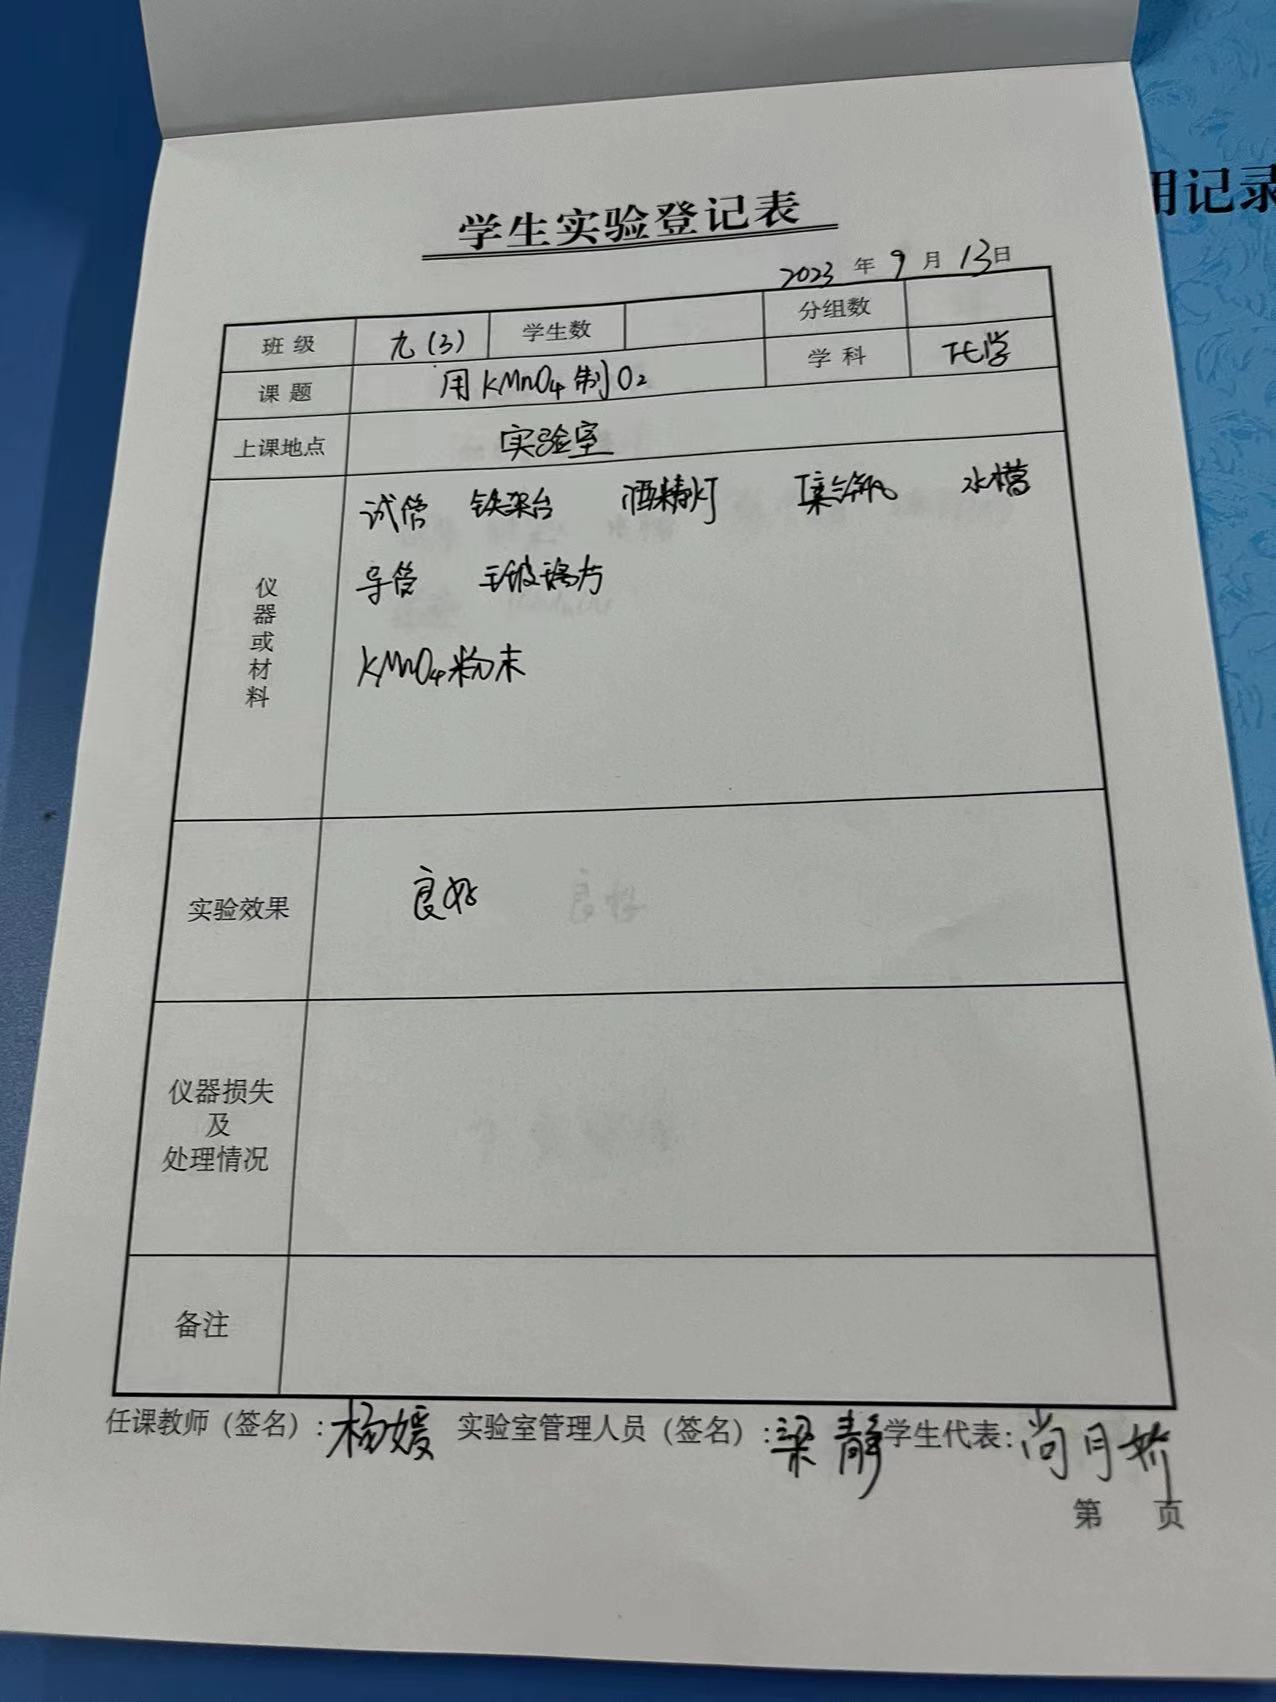 学生实验登记表
2023 年 9 月 13 日
班级 九(3) 学生数 分组数
课题 用KMnO4制O2 学科 化学
上课地点 实验室
仪器或材料
试管 铁架台 酒精灯 集气瓶 水槽
导管 玻璃片
KMnO4粉末
实验效果 良好
仪器损失
及
处理情况
备注
任课教师（签名）：杨媛 实验室管理人员（签名）：梁静 学生代表：尚月娇
第 页
用记录